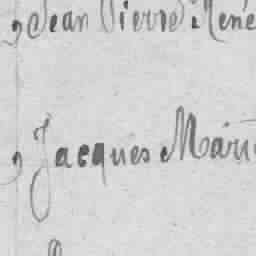 , Jean Pierre René
, Jacques Mari